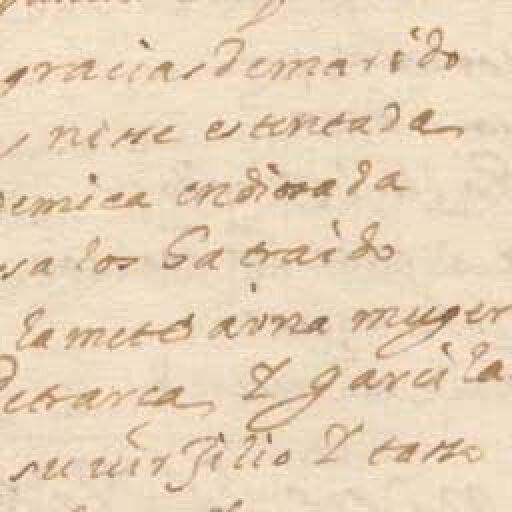 gracias de marido
ni sse estentada
demica endiosada
sa los ha traido
la mete a una muger
Petrarca, Y garcila
su uirgilio Y tasso